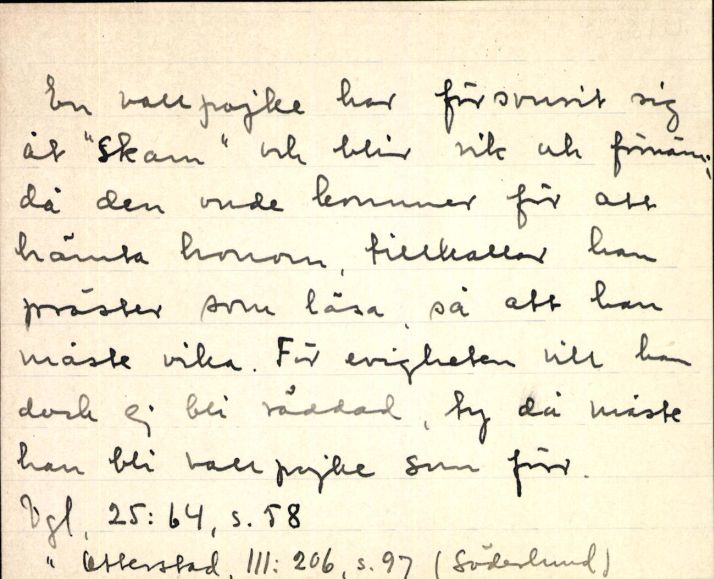 En vallpojke har försvurit sig
åt "Skam" och blir rik och förnäm;
då den onde kommer för att
hämta honom, tillkallar han
präster som läsa, så att han
måste vika. För evigheten vill han
dock ej bli räddad, ty då måste
han bli vallpojke som förr.
Vgl, 25:64, s. 58
" Otterstad, III: 206, s. 97 (Söderlund)